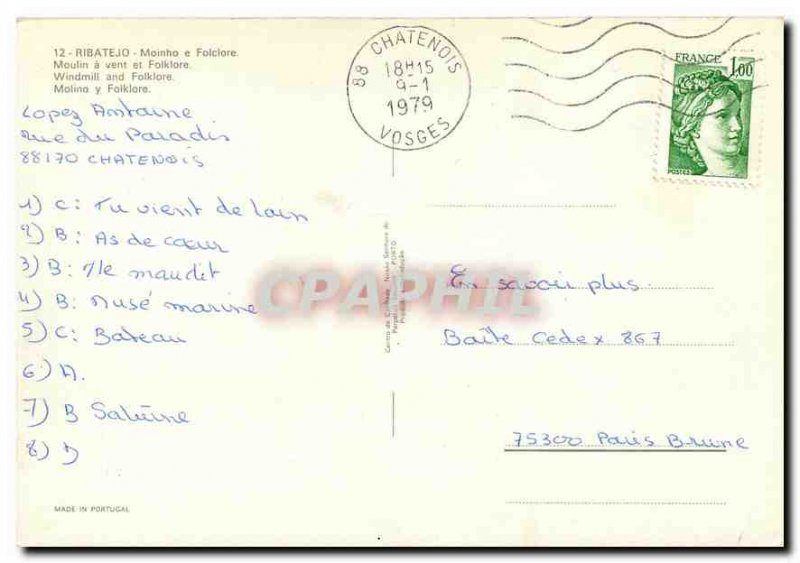 12 - RIBATEJO - Moinho e Folclore.
Moulin à vent et Folklore.
Windmill and Folklore.
Molino y Folklore.
88 CHATENOIS
18H15
9-1
1979
VOSGES
FRANCE
1,00
POSTES
Lopez Antoine
rue du Paradis
88170 CHATENOIS
1) C: Tu vient de loin
2) B: As de cœur
3) B: Ile maudit
4) B: Musé marine
5) C: Bateau
6) A.
7) B
8)
En savoir plus.
Boîte Cedex 867
75300 Paris Brune
CPAPHIL
MADE IN PORTUGAL